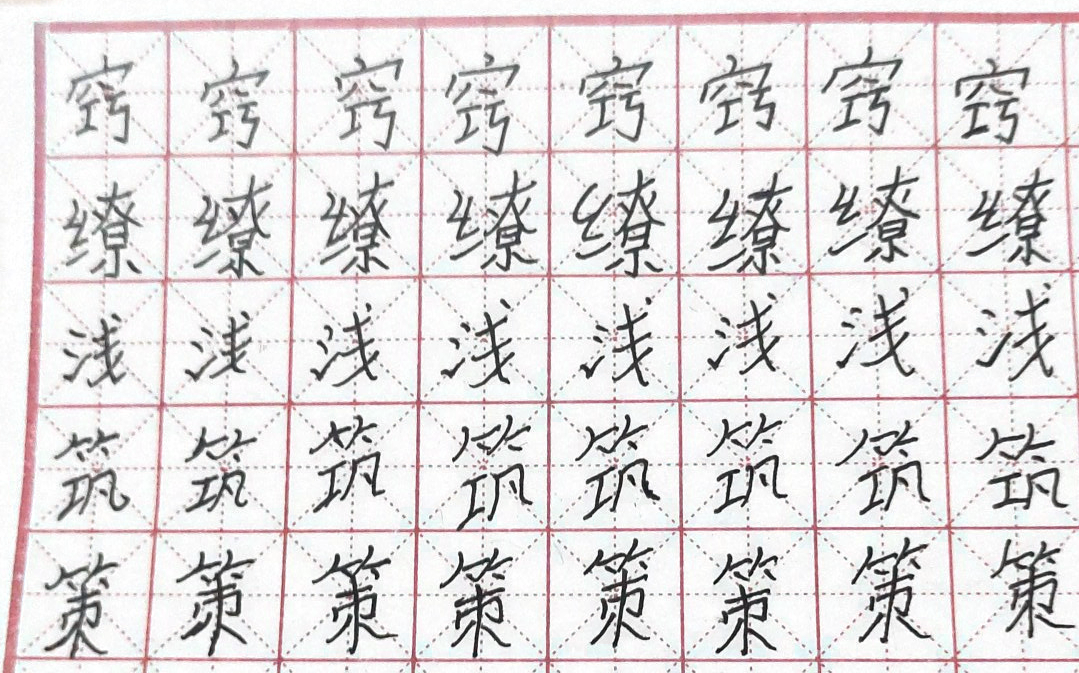 窍窍窍窍窍窍窍窍
缭缭缭缭缭缭缭缭
浅浅浅浅浅浅浅浅
筑筑筑筑筑筑筑筑
策策策策策策策策